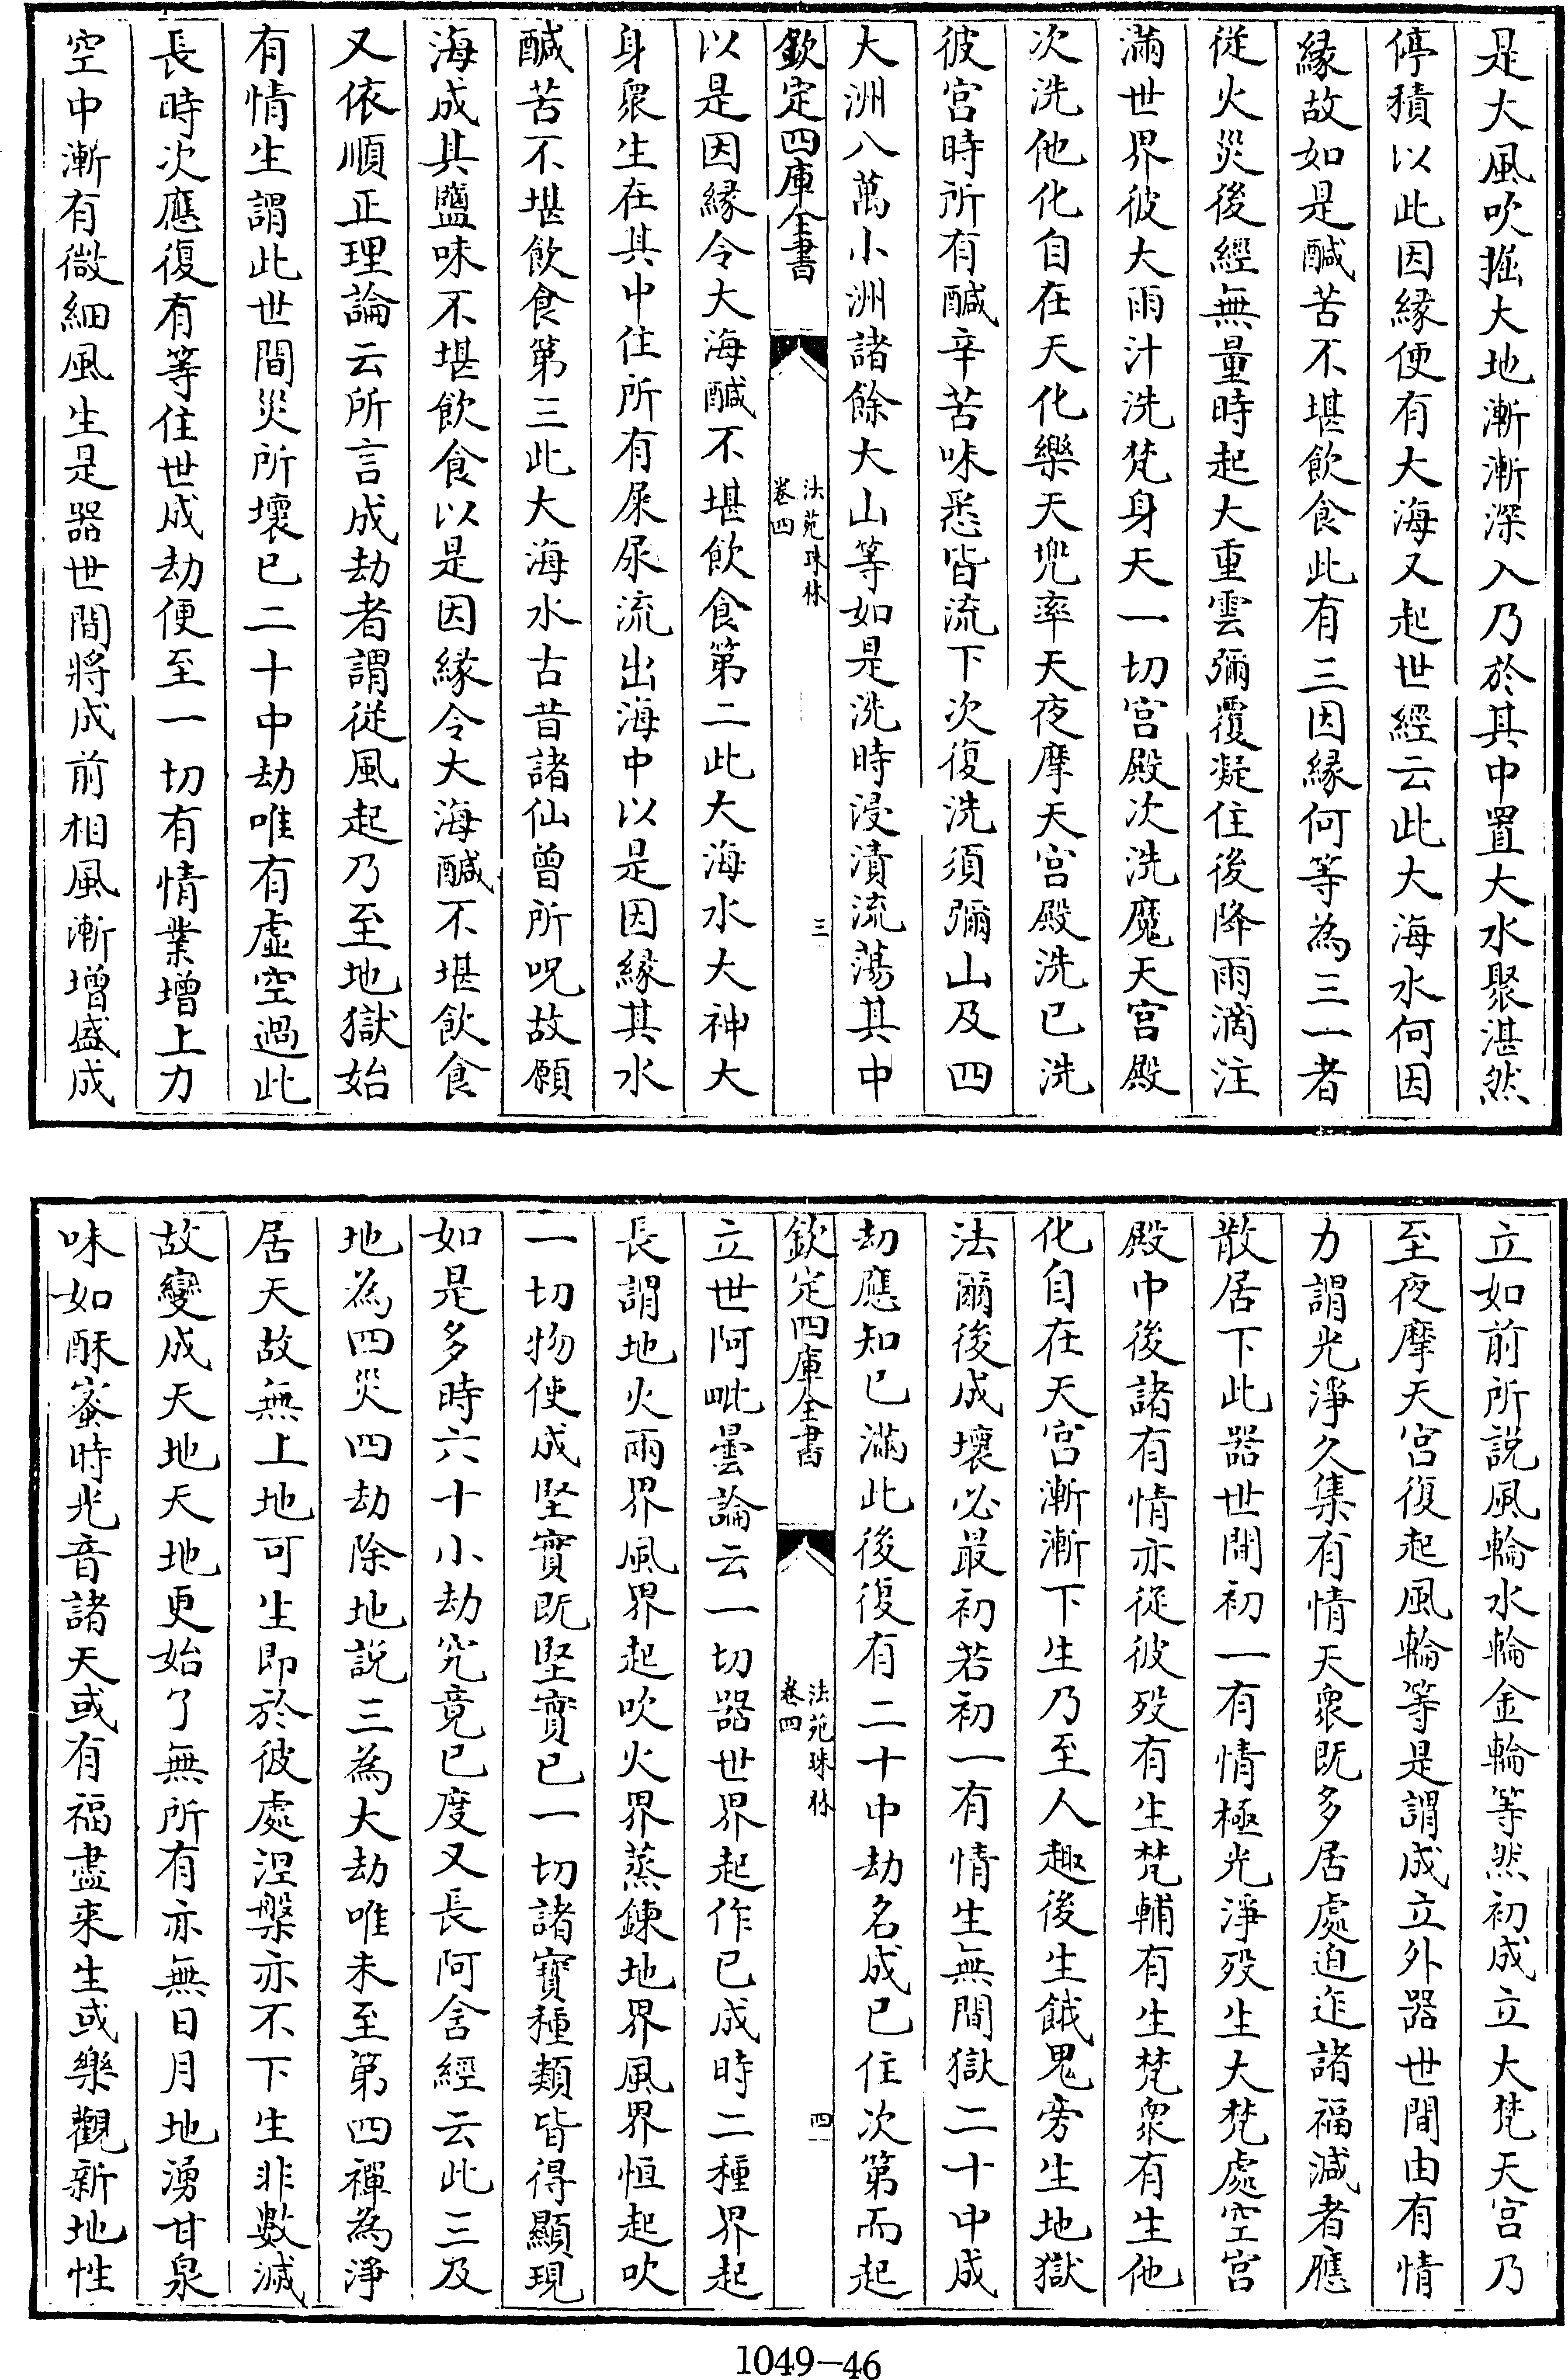 是大風吹掘大地漸漸深入乃於其中置大水聚湛然
停積以此因緣便有大海又起世經云此大海水何因
緣故如是醎苦不堪飲食此有三因緣何等為三一者
從火災後經無量時起大重雲彌覆凝住後降雨滴注
滿世界彼大雨汁洗梵身天一切宫殿次洗魔天宫殿
次洗他化自在天化樂天兜率天夜摩天宫殿洗已洗
彼宫時所有醎辛苦味悉皆流下次復洗須彌山及四
大洲八萬小洲諸餘大山等如是洗時浸漬流蕩其中
欽定四庫全書
法苑珠林
卷四
三
以是因緣令大海醎不堪飲食第二此大海水大神大
身衆生在其中住所有屎尿流出海中以是因緣其水
醎苦不堪飲食第三此大海水古昔諸仙曾所呪故願
海成其鹽味不堪飲食以是因緣令大海醎不堪飲食
又依順正理論云所言成劫者謂從風起乃至地獄始
有情生謂此世間災所壞已二十中劫唯有虛空過此
長時次應復有等住世成劫便至一切有情業增上力
空中漸有微細風生是器世間將成前相風漸增盛成
立如前所説風輪水輪金輪等然初成立大梵天宫乃
至夜摩天宫復起風輪等是謂成立外器世間由有情
力謂光淨久集有情天衆既多居處迫迮諸福減者應
散居下此器世間初一有情極光淨歿生大梵處空宫
殿中後諸有情亦從彼歿有生梵輔有生梵衆有生他
化自在天宫漸漸下生乃至人趣後生餓鬼旁生地獄
法爾後成壞必最初若初一有情生無間獄二十中成
劫應知已滿此後復有二十中劫名成已住次第而起
欽定四庫全書
法苑珠林
卷四
四
立世阿毗曇論云一切器世界起作已成時二種界起
長謂地火兩界風界起吹火界蒸鍊地界風界恒起吹
一切物使成堅實既堅實已一切諸寶種類皆得顯現
如是多時六十小劫究竟已度又長阿含經云此三及
地為四災四劫除地説三為大劫唯未至第四禪為淨
居天故無上地可生即於彼處涅槃亦不下生非數滅
故變成天地天地更始了無所有亦無日月地湧甘泉
味如酥蜜時光音諸天或有福盡來生或樂觀新地性
1049-46